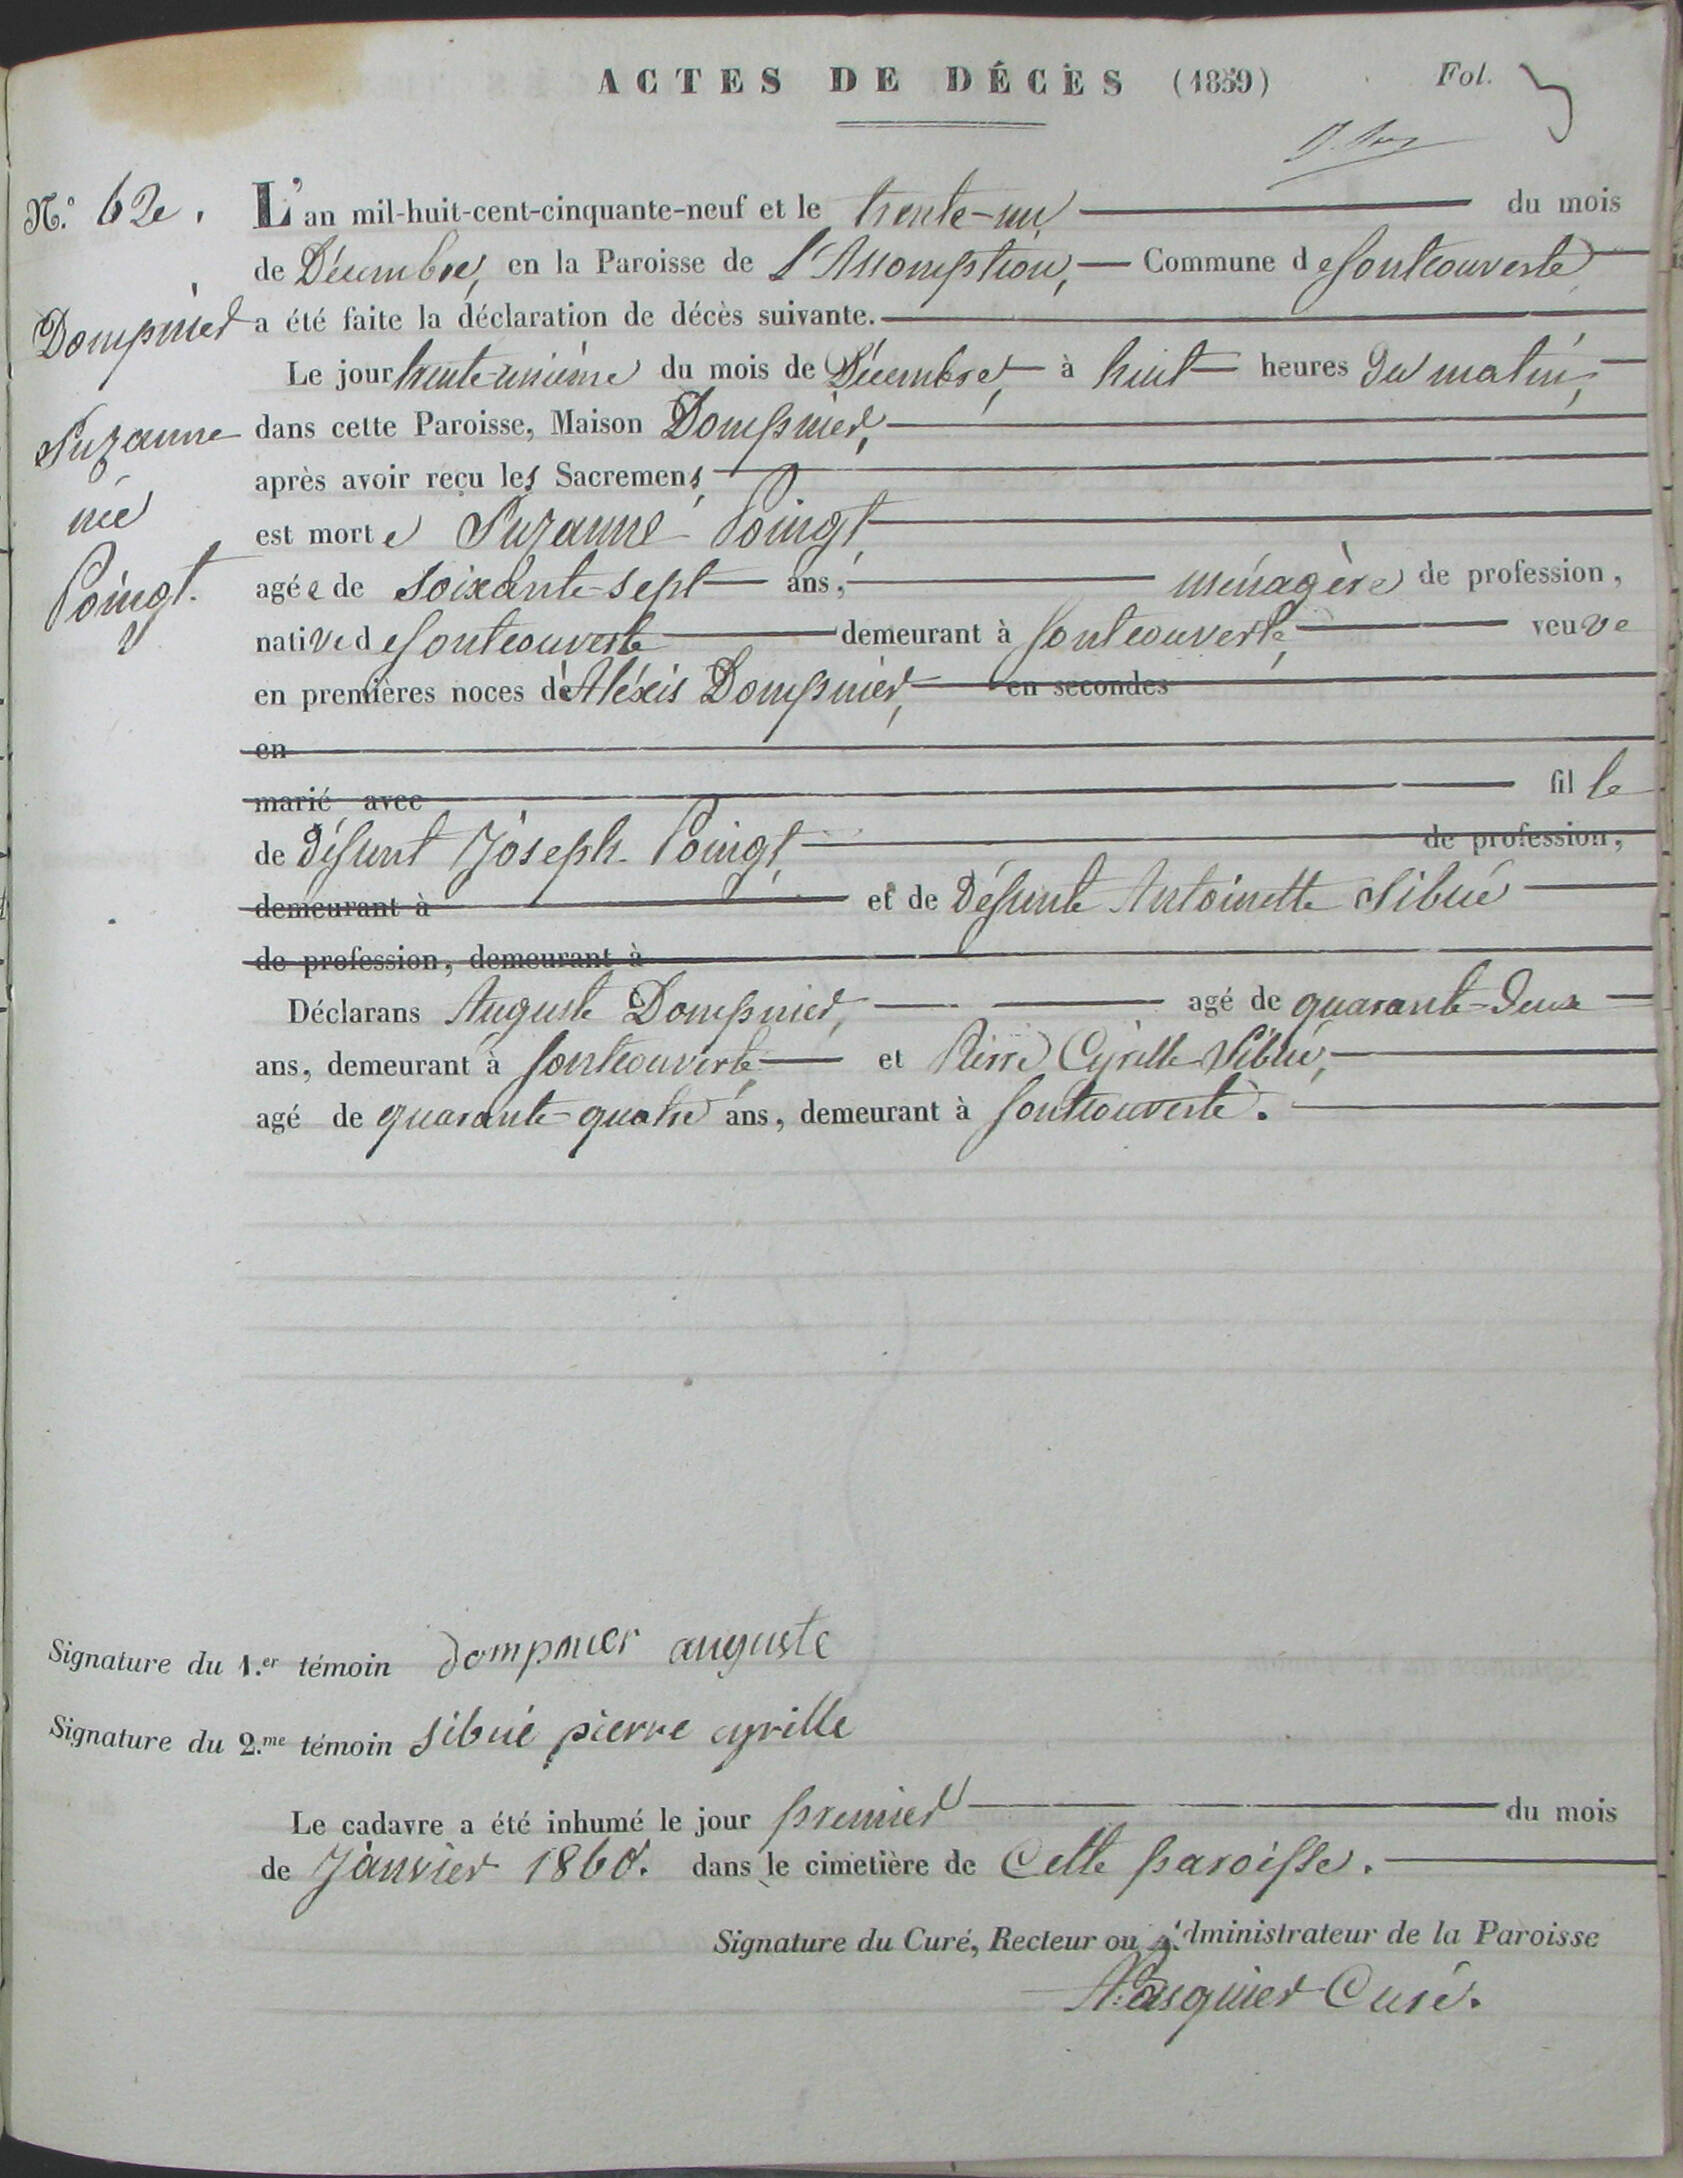 ACTES DE DÉCÈS (1859) Fol.
N.° 62e.
Dompnier
Suzanne
née
Poingt.
L'an mil-huit-cent-cinquante-neuf et le trente-un du mois
de Décembre, en la Paroisse de L'Assomption, Commune de fontcouverte
a été faite la déclaration de décès suivante.
Le jour trente-unième du mois de Décembre, à huit heures du matin,
dans cette Paroisse, Maison Dompnier,
après avoir reçu les Sacremens,
est morte Suzanne Poingt,
agée de soixante-sept ans, ménagère de profession,
native de fontcouverte demeurant à fontcouverte, veuve
en premières noces d'Aléxis Dompnier, en secondes
en
marié avec fille
de défunt Joseph Poingt, de profession,
demeurant à et de Défunte Antoinette Sibué
de profession, demeurant à
Déclarans Auguste Dompnier, agé de quarante-deux
ans, demeurant à fontcouverte, et Pierre Cyrille Sibué,
agé de quarante-quatre ans, demeurant à fontcouverte.
Signature du 1.er témoin dompnier auguste
Signature du 2.me témoin sibué pierre cyrille
Le cadavre a été inhumé le jour premier du mois
de Janvier 1860. dans le cimetière de Cette paroisse.
Signature du Curé, Recteur ou Administrateur de la Paroisse
Pasquier Curé.